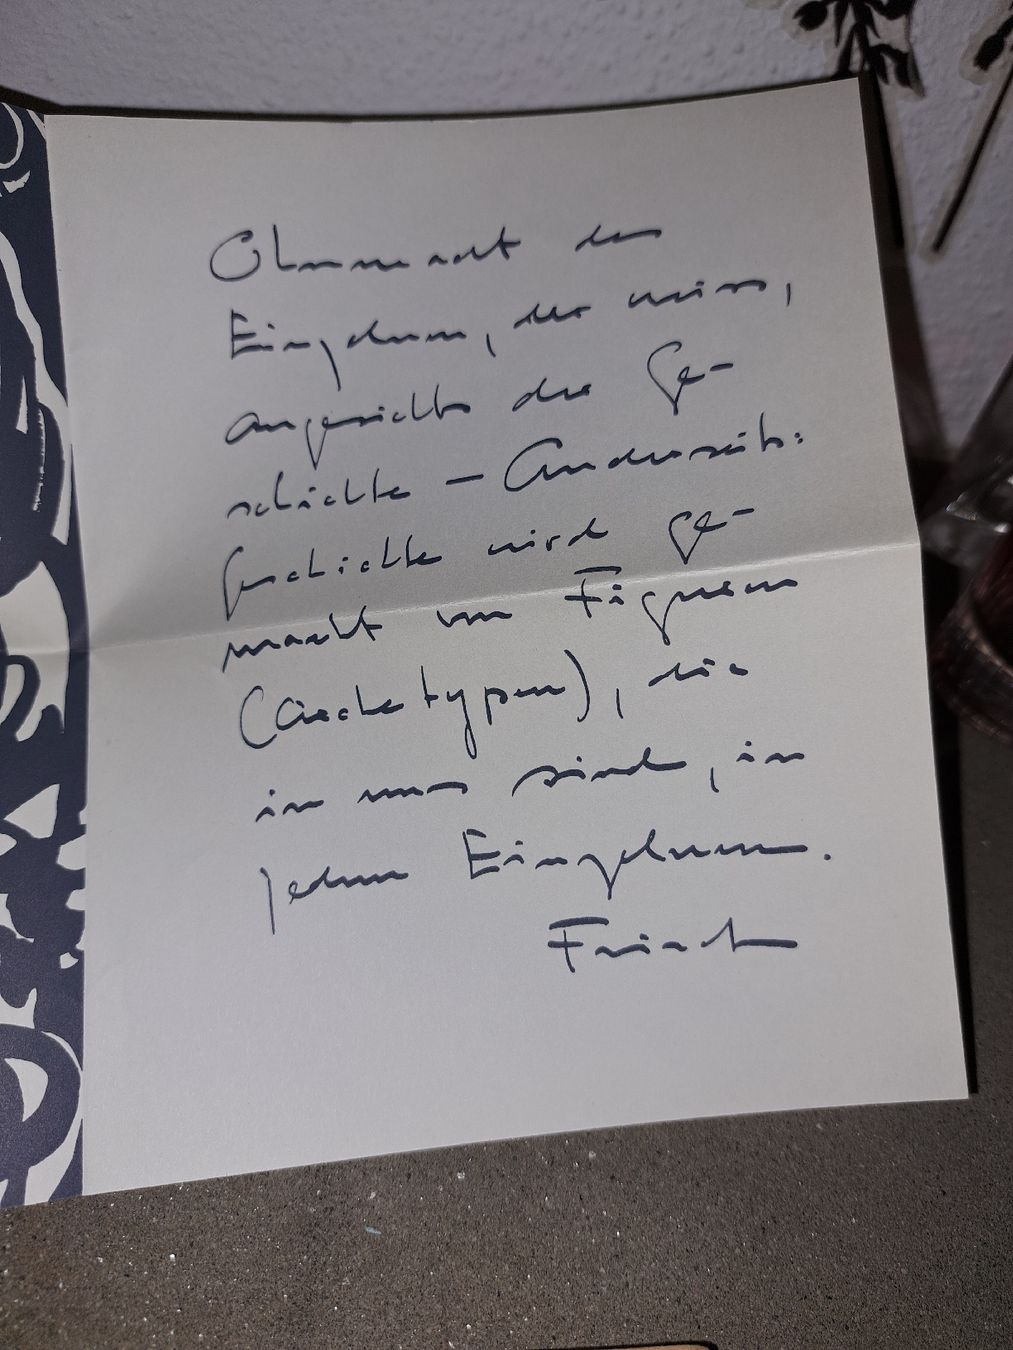 Ohnmacht des
Einzelnen, der weiss,
angesichts der Ge-
schichte – Anderseits:
Geschichte wird ge-
macht von Figuren
(Archetypen), die
in uns sind, in
jedem Einzelnen.
Frisch